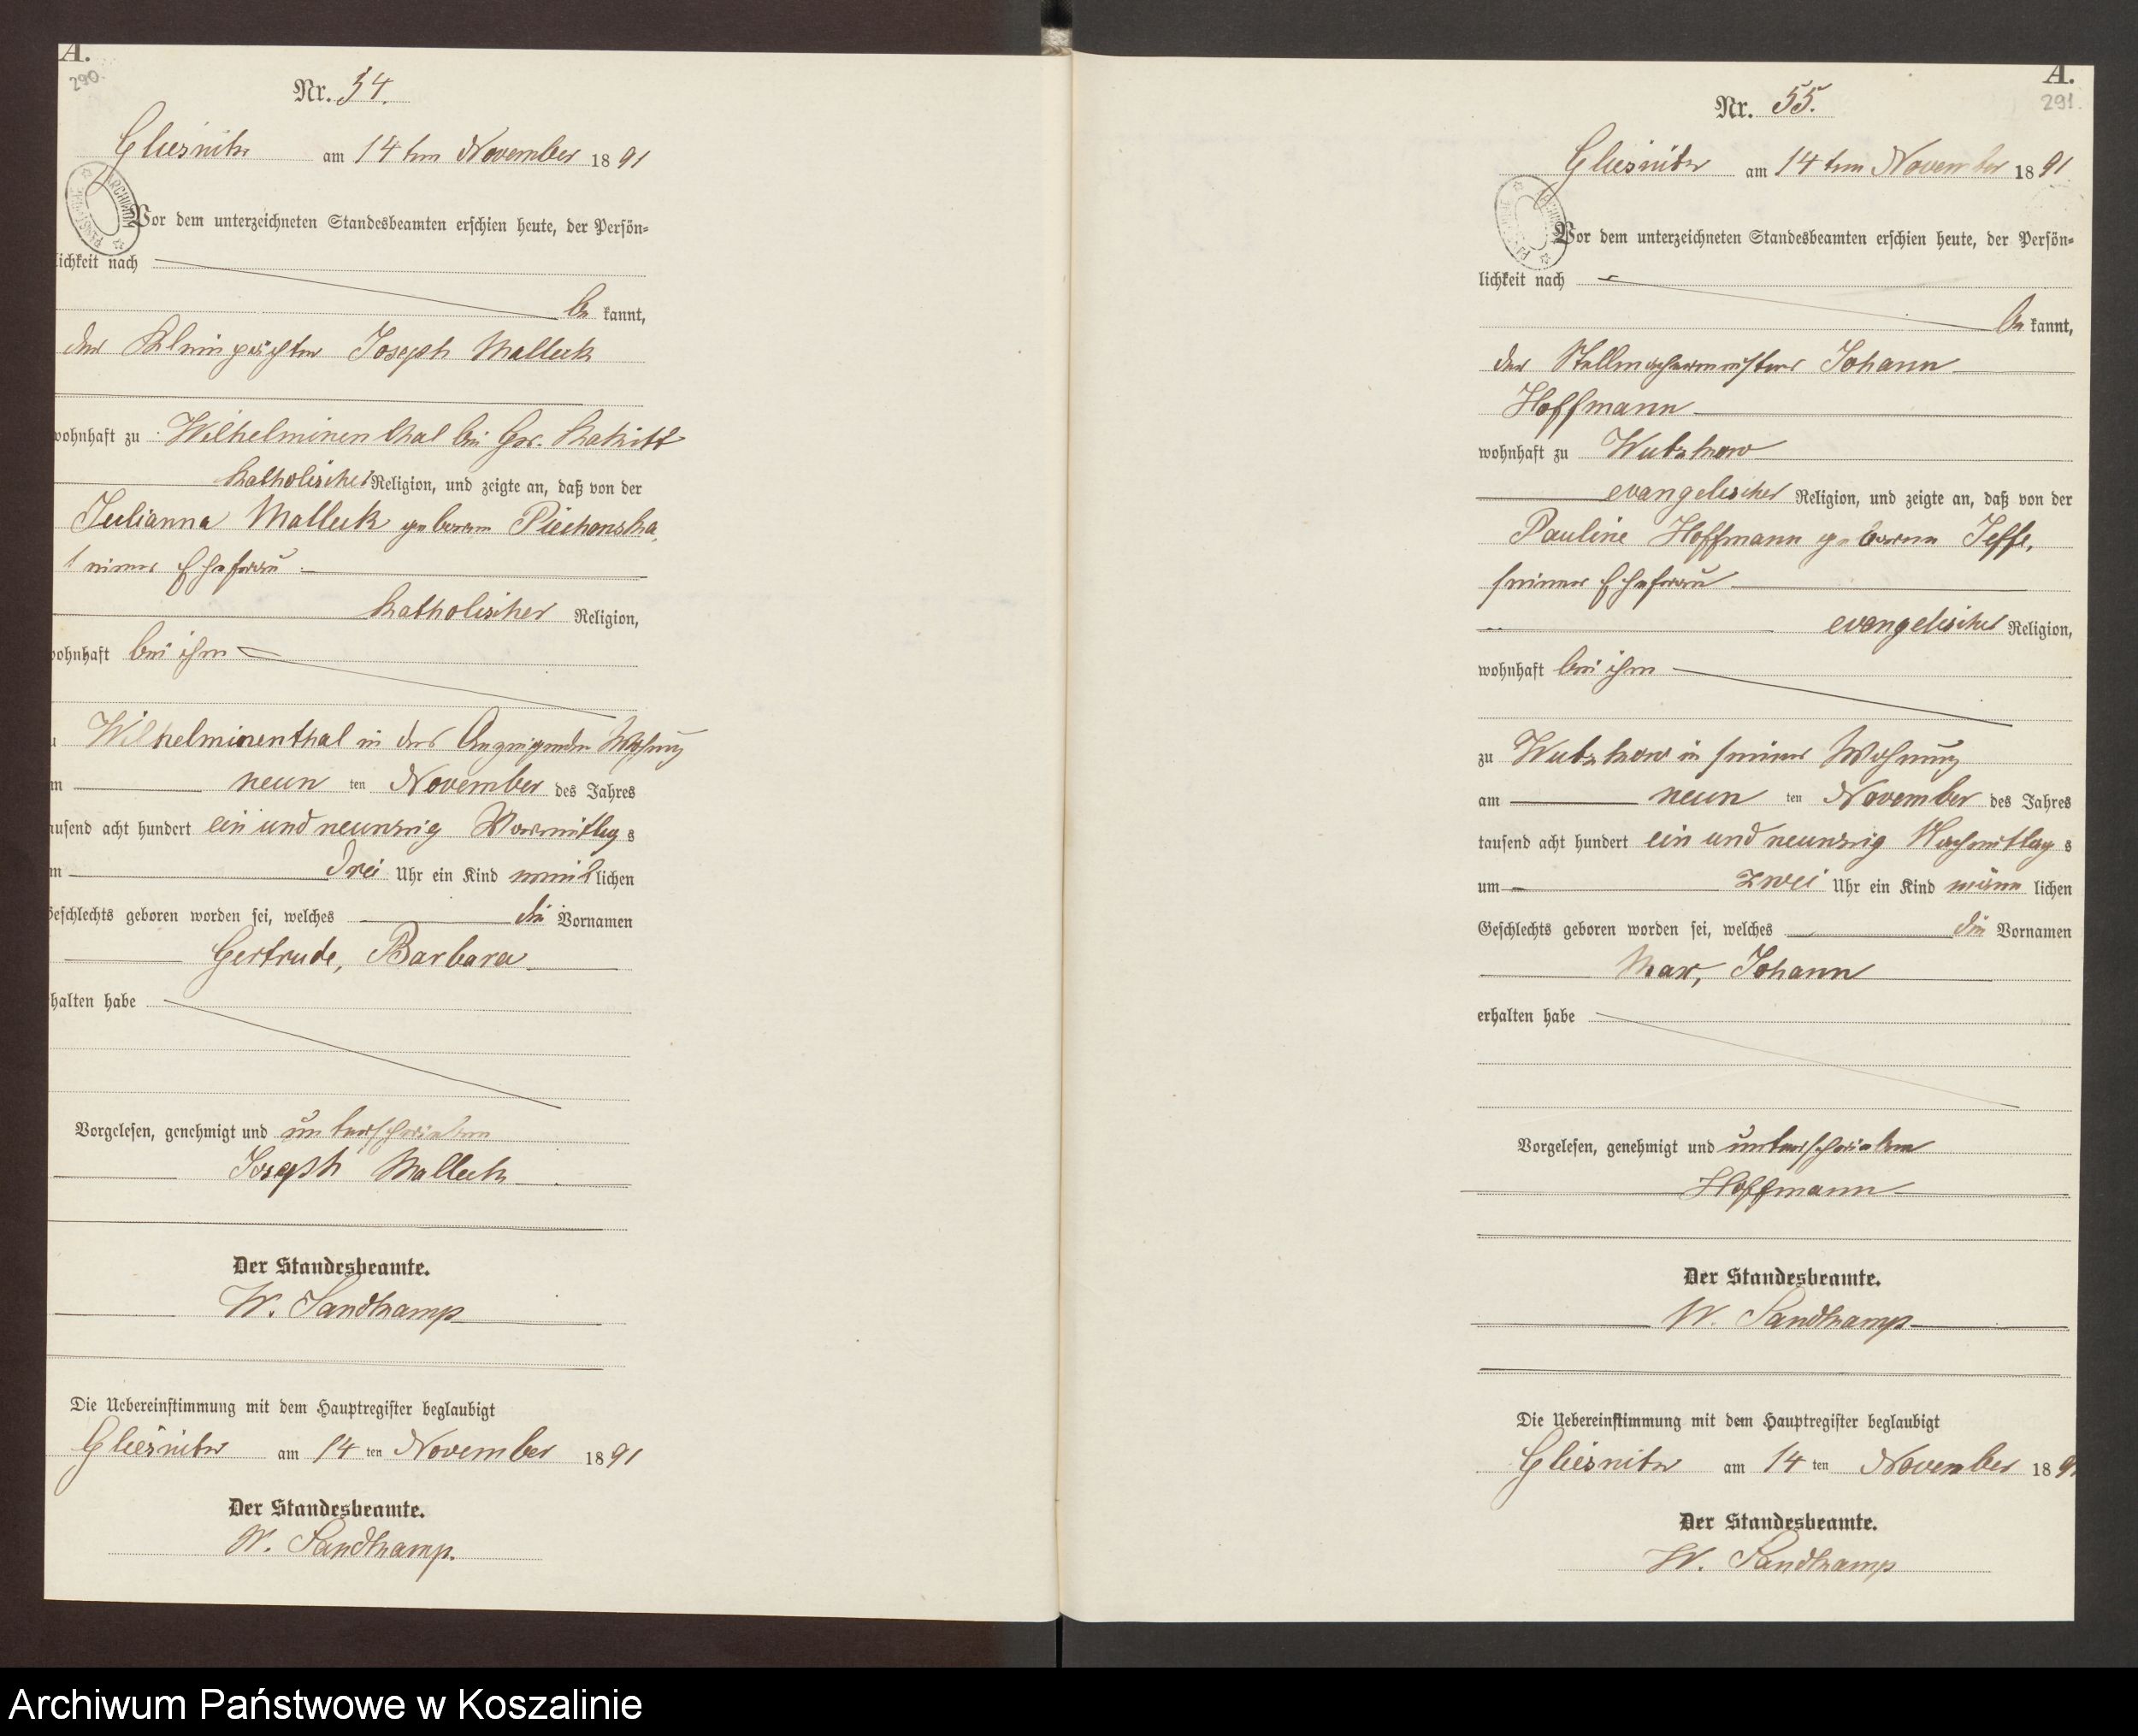 A.
290.
Nr. 54.
Gliesnitz am 14ten November 1891
Vor dem unterzeichneten Standesbeamten erschien heute, der Persön-
lichkeit nach
be kannt,
der Kleinpächter Joseph Malleck
wohnhaft zu Wilhelminenthal bei Gr.
katholischer Religion, und zeigte an, daß von der
Julianna Malleck geboren
seiner Ehefrau
katholischer Religion,
wohnhaft bei ihm
Wilhelminenthal in der Anzeigenden Wohnung
neun ten November des Jahres
tausend acht hundert ein und neunzig Vormittag s
drei Uhr ein Kind weib lichen
Geschlechts geboren worden sei, welches die Vornamen
Gertrude, Barbara
halten habe
Vorgelesen, genehmigt und unterschrieben
Joseph Malleck
Der Standesbeamte.
W. Sandkamp
Die Uebereinstimmung mit dem Hauptregister beglaubigt
Gliesnitz am 14 ten November 1891
Der Standesbeamte.
W. Sandkamp.
A.
291.
Nr. 55.
Gliesnitz am 14ten November 1891
Vor dem unterzeichneten Standesbeamten erschien heute, der Persön-
lichkeit nach
be kannt,
der Stellmachermeister Johann
Hoffmann
wohnhaft zu Wutzkow
evangelischer Religion, und zeigte an, daß von der
Pauline Hoffmann geborene
seiner Ehefrau
evangelischer Religion,
wohnhaft bei ihm
zu Wutzkow in seiner Wohnung
am neun ten November des Jahres
tausend acht hundert ein und neunzig Nachmittag s
um zwei Uhr ein Kind männ lichen
Geschlechts geboren worden sei, welches die Vornamen
Max, Johann
erhalten habe
Vorgelesen, genehmigt und unterschrieben
Hoffmann
Der Standesbeamte.
W. Sandkamp
Die Uebereinstimmung mit dem Hauptregister beglaubigt
Gliesnitz am 14 ten November 189
Der Standesbeamte.
W. Sandkamp
Archiwum Państwowe w Koszalinie